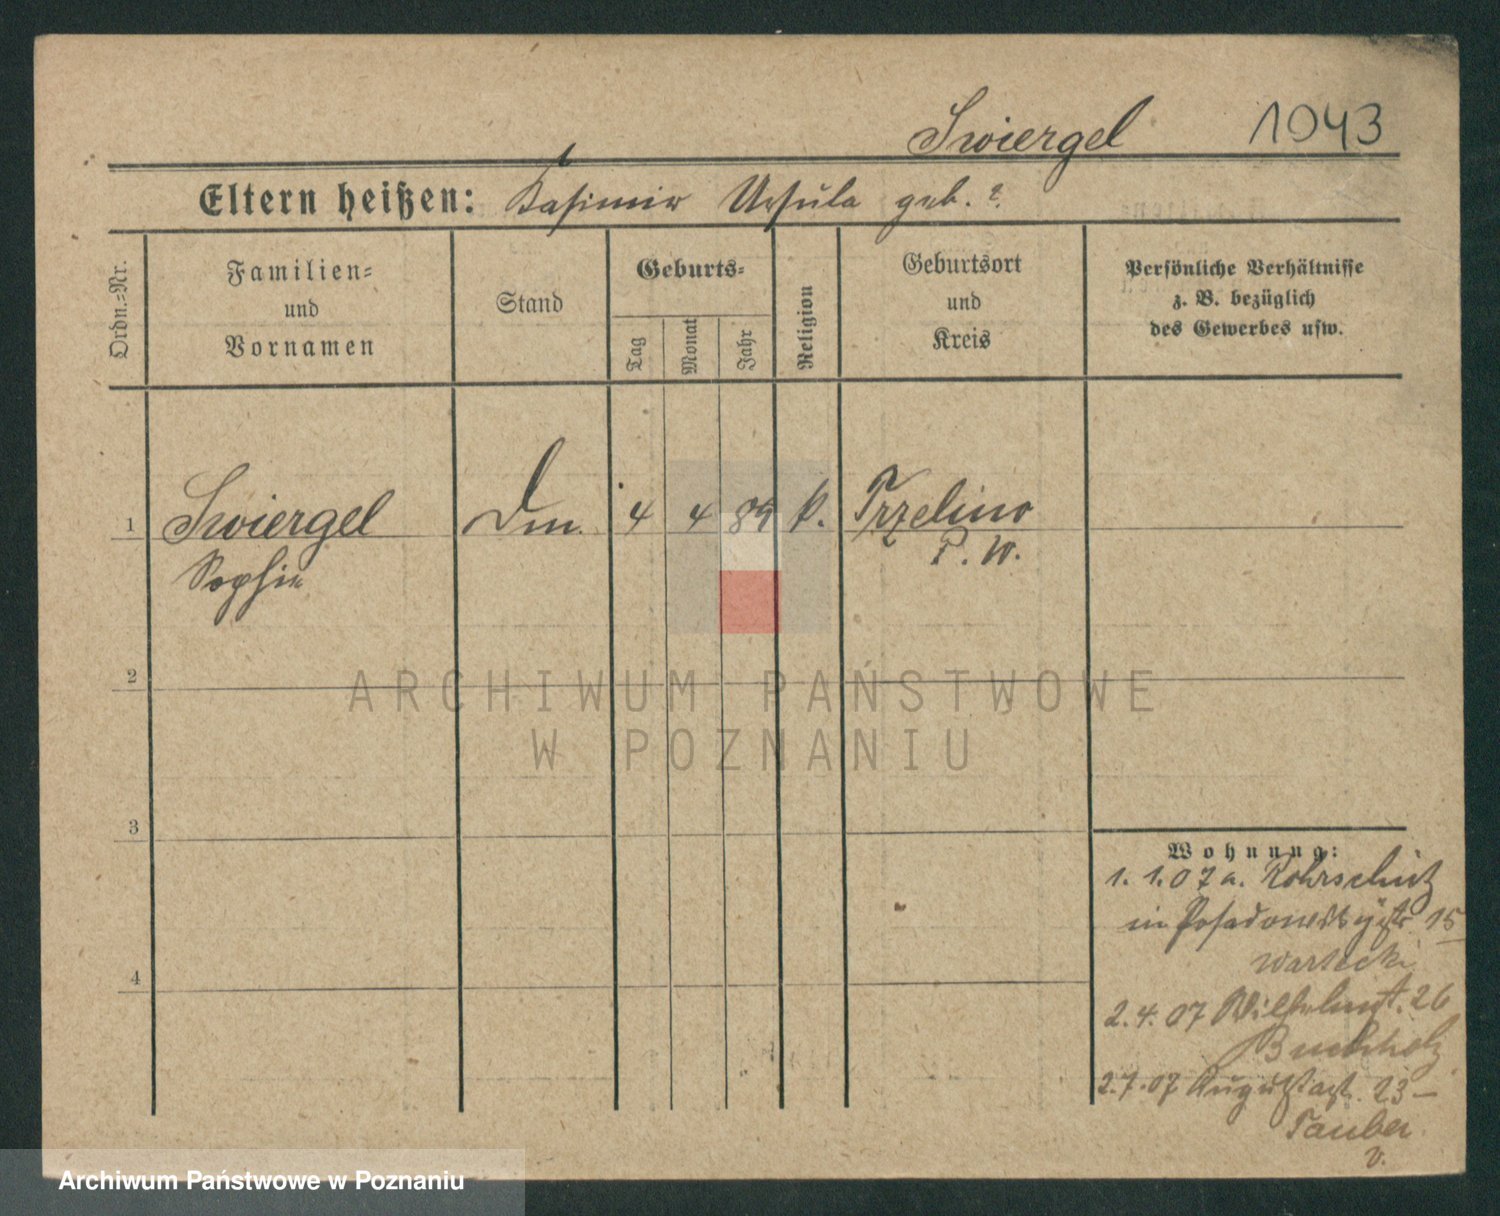 Swiergel 1043
Eltern heißen: Kasimir Ursula geb. ?
Ordn.=Nr.
Familien=
und
Vornamen
Stand
Geburts=
Tag
Monat
Jahr
Religion
Geburtsort
und
Kreis
Persönliche Verhältnisse
z. B. bezüglich
des Gewerbes usw.
1 Swiergel Dm. 4 4 89 k. Trzelino
Sophie P. W.
2
ARCHIWUM PAŃSTWOWE
W POZNANIU
3
4
Wohnung:
1. 1.07 a. Rohrschütz
in 15
Wartecki
2.4.07 Wilhelmst. 26
Buchholz
2.7.07 Augustast. 23 –
Tauber
v.
Archiwum Państwowe w Poznaniu